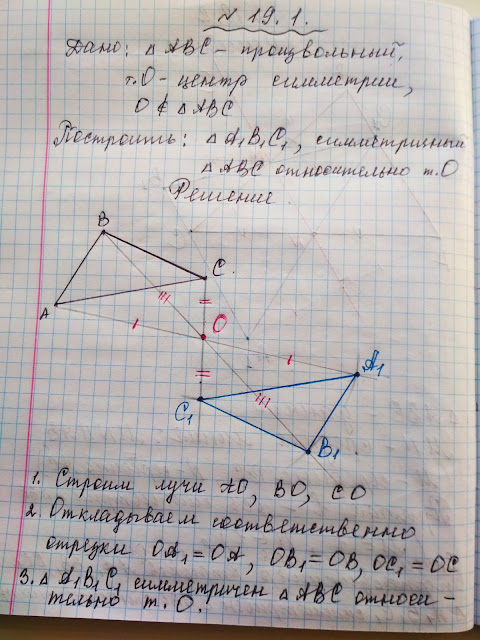 № 19.1.
Дано: △ ABC - произвольный,
т.O - центр симметрии,
O ∉ △ ABC
Построить: △ A₁B₁C₁, симметричный
△ ABC относительно т.O
Решение
B
C
A
O
A₁
C₁
B₁
1. Строим лучи AO, BO, CO
2. Откладываем соответственно
отрезки OA₁ = OA, OB₁ = OB, OC₁ = OC
3. △ A₁B₁C₁ симметричен △ ABC относи-
тельно т.O.